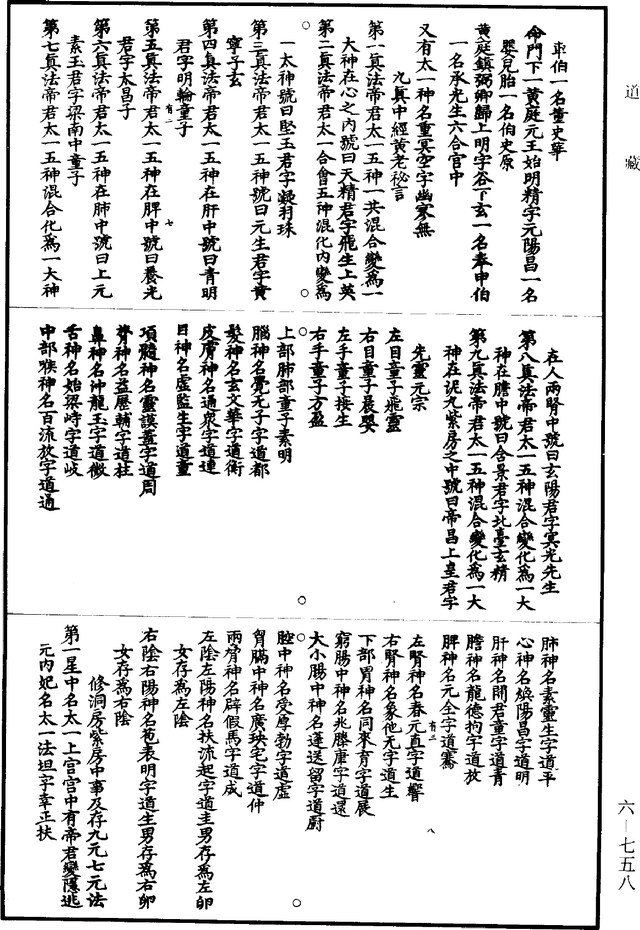 道藏
来伯一名董史華
命門下一黃庭元王始明精字元陽昌一名
嬰兒胎一名伯史原
黃庭鎮弼卿歸上明字谷下玄一名奉申伯
一名承光生六合宮中
又有太一種名重冥空字幽寥無
九真中經黃老祕言
第一真法帝君太一五神一共混合變為一
大神在心之內號曰天精君字飛生上英
第二真法帝君太一合會五神混化內變為
一太神號曰堅玉君字凝羽珠
第三真法帝君太一五神號曰元生君字黃
寧子玄
第四真法帝君太一五神在肝中號曰青明
君字明輪童子
第五真法帝君太一五神在脾中號曰養光
君字太昌子
第六真法帝君太一五神在肺中號曰上元
素玉君字梁南中童子
第七真法帝君太一五神混合化為一大神
有二
七
在人兩腎中號曰玄陽君字冥光先生
第八真法帝君太一五神混合變化為一大
神在膽中號曰含景君字北臺玄精
第九真法帝君太一五神混合變化為一大
神在泥九紫房之中號曰帝昌上皇君字
先靈元宗
左目童子飛靈
右目童子晨嬰
左手童子接生
右手童子方盈
上部肺部童子素明
腦神名覺无子字道都
髮神名玄文華字道衡
皮膚神名通眾字道連
目神名虛監生字道童
項髓神名靈謨蓋字道周
膂神名益歷輔字道柱
鼻神名沖龍玉字道微
舌神名始梁峙字道岐
中部喉神名百流放字道通
肺神名素靈生字道平
心神名煥陽昌字道明
肝神名開君童字道青
膽神名龍德拘字道放
脾神名元全字道騫
左腎神名春元直字道響
右腎神名象他无字道生
下部胃神名同來育字道展
窮腸中神名兆滕康字道還
大小腸中神名蓬送留字道廚
腔中神名受厚勃字道虛
胃膈中神名廣瑛宅字道仲
兩脅神名辟假馬字道成
左陰左陽神名扶流起字道圭男存為左卵
女存為左陰
右陰右陽神名苞表明字道生男存為右卵
女存為右陰
修洞房紫房中事及存九元七元法
第一星中名太一上宮宮中有帝君變隱逃
元內妃名太一法坦字幸正扶
有二
八
六—七五八